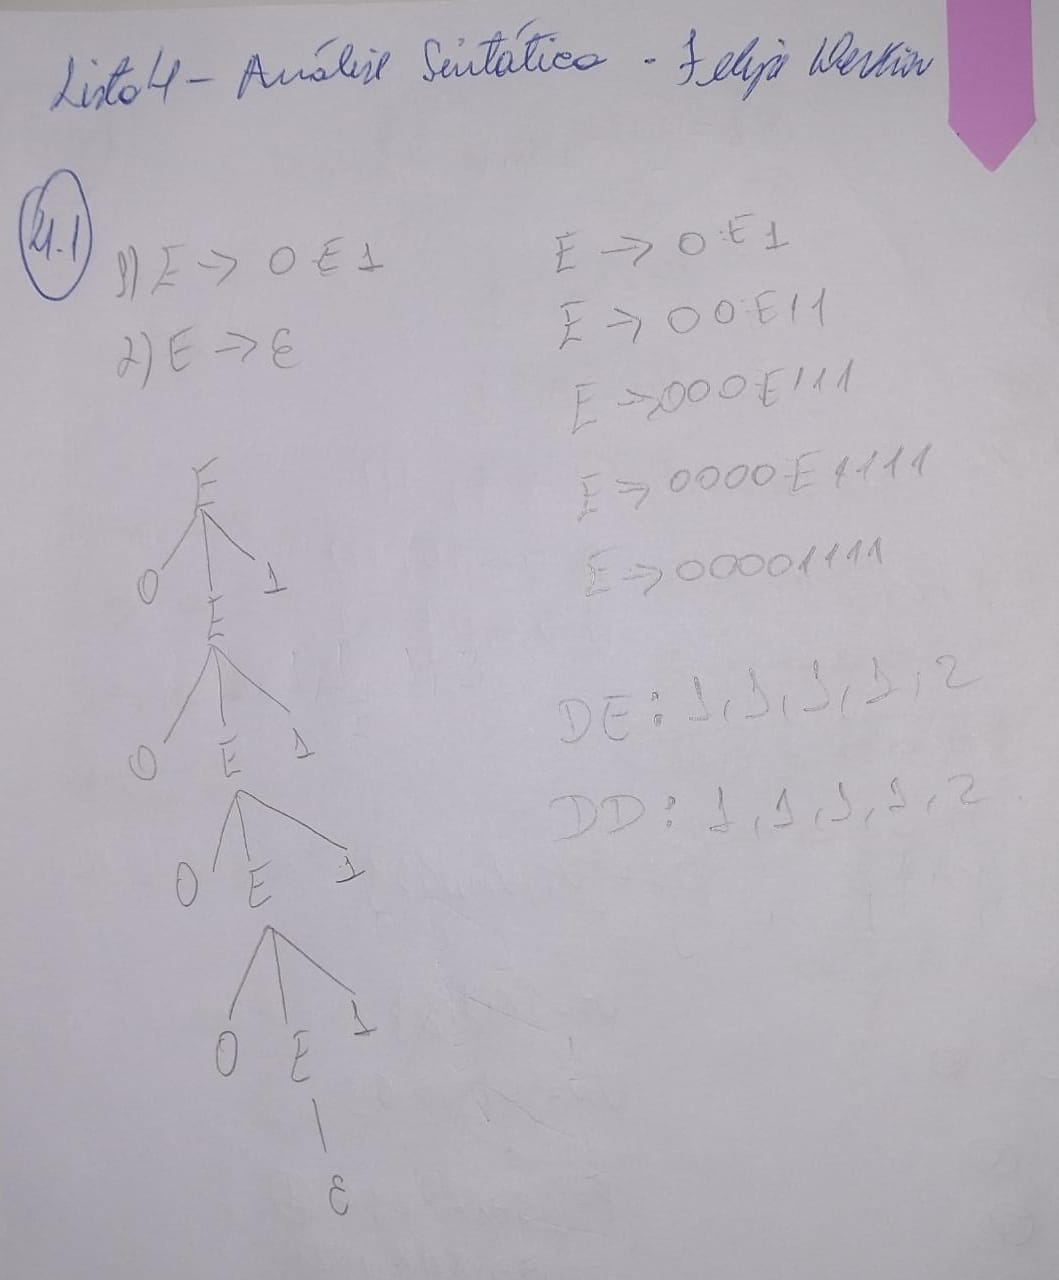 Lista 4 - Análise Sintática - Felipe
4.1
1) E → 0 E 1
2) E → ε
E
0 E 1
0 E 1
0 E 1
0 E 1
ε
E → 0 E 1
E → 00E11
E → 000E111
E → 0000E1111
E → 00001111
DE: 1, 1, 1, 1, 2
DD: 1, 1, 1, 1, 2.